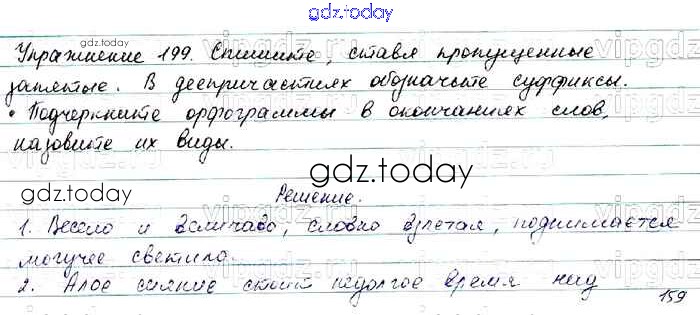 gdz.today
Упражнение 199. Спишите, ставя пропущенные
gdz.today
запятые. В деепричастиях обозначьте суффиксы.
• Подчеркните орфограммы в окончаниях слов,
назовите их виды.
gdz.today
gdz.today
Решение.
1. Весело и величаво, словно взлетая, поднимается
могучее светило.
2. Алое сияние стоит недолгое время над
159